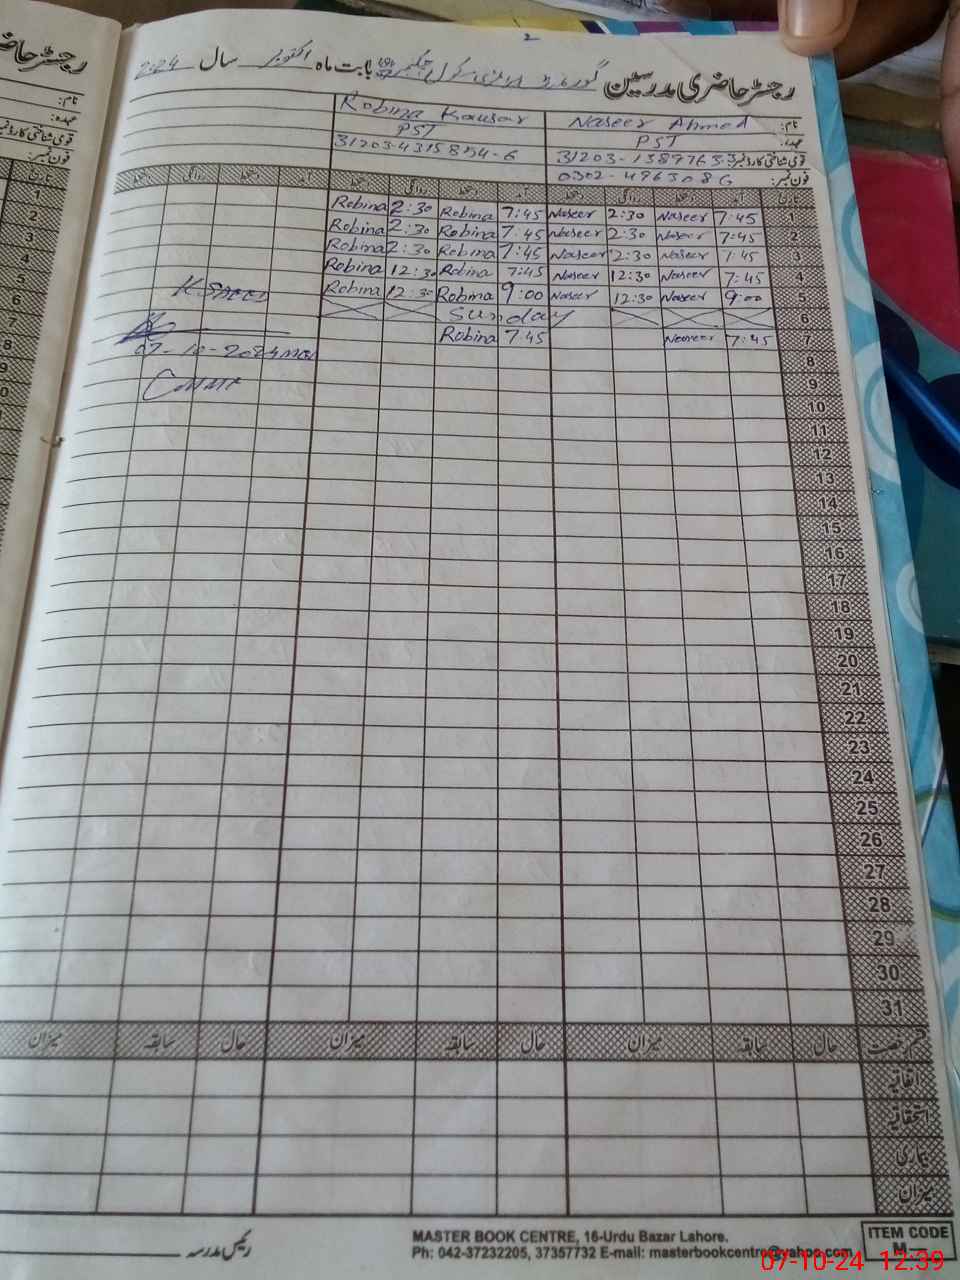 2
رجسٹر حاضری مدرسین گورنمنٹ پرائمری سکول بابت ماہ اکتوبر سال 2024
رجسٹر حاضری
نام: Naseer Ahmed Robina Kausar
عہدہ: PST PST
قومی شناختی کارڈ نمبر: 31203-4315854-6
فون نمبر: 0302-4963086
نام:
عہدہ:
قومی شناختی کارڈ نمبر
فون نمبر:
تاریخ آمد دستخط روانگی دستخط آمد دستخط روانگی دستخط آمد دستخط روانگی دستخط
1 7:45 Naseer 2:30 Naseer 7:45 Robina 2:30 Robina
2 7:45 Naseer 2:30 Naseer 7:45 Robina 2:30 Robina
3 7:45 Naseer 2:30 Naseer 7:45 Robina 2:30 Robina
4 7:45 Naseer 12:30 Naseer 7:45 Robina 12:30 Robina
5 9:00 Naseer 12:30 Naseer 9:00 Robina 12:30 Robina
6 Sunday
7 7:45 Naseer 7:45 Robina
07-10-2024
8
9
10
11
12
13
14
15
16
17
18
19
20
21
22
23
24
25
26
27
28
29
30
31
قسم رخصت حال سابقہ میزان حال سابقہ میزان حال سابقہ میزان
اتفاقیہ
استحقاقیہ
بیماری
میزان
رئیس مدرسہ
MASTER BOOK CENTRE, 16-Urdu Bazar Lahore.
Ph: 042-37232205, 37357732 E-mail: masterbookcentre@yahoo.com
ITEM CODE
M
07-10-24 12:39